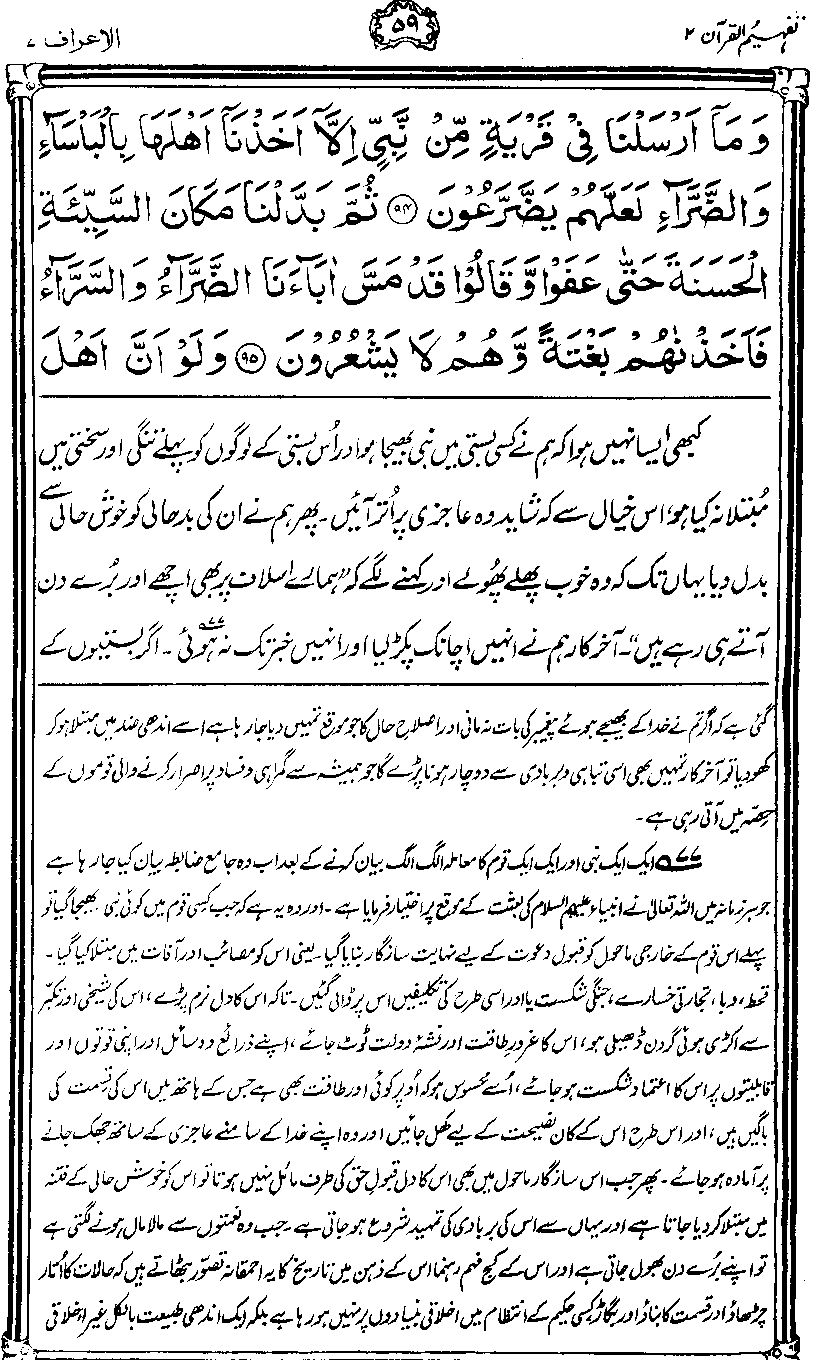 تفہیم القرآن ۲
۵۹
الاعراف ۷
وَمَآ اَرْسَلْنَا فِیْ قَرْیَةٍ مِّنْ نَّبِیٍّ اِلَّآ اَخَذْنَآ اَهْلَهَا بِالْبَاْسَآءِ
وَالضَّرَّآءِ لَعَلَّهُمْ یَضَّرَّعُوْنَ ﴿۹۴﴾ ثُمَّ بَدَّلْنَا مَكَانَ السَّیِّئَةِ
الْحَسَنَةَ حَتّٰی عَفَوْا وَّقَالُوْا قَدْ مَسَّ اٰبَآءَنَا الضَّرَّآءُ وَالسَّرَّآءُ
فَاَخَذْنٰهُمْ بَغْتَةً وَّهُمْ لَا یَشْعُرُوْنَ ﴿۹۵﴾ وَلَوْ اَنَّ اَهْلَ
کبھی ایسا نہیں ہوا کہ ہم نے کسی بستی میں نبی بھیجا ہو اور اُس بستی کے لوگوں کو پہلے تنگی اور سختی میں
مُبتلا نہ کیا ہو، اس خیال سے کہ شاید وہ عاجزی پر اُتر آئیں۔ پھر ہم نے ان کی بدحالی کو خوش حالی سے
بدل دیا یہاں تک کہ وہ خوب پھلے پھُولے اور کہنے لگے کہ ”ہمارے اسلاف پر بھی اچھے اور بُرے دن
آتے ہی رہے ہیں“۔ آخر کار ہم نے انہیں اچانک پکڑ لیا اور انہیں خبر تک نہ ہوئی ؁۷۷۔ اگر بستیوں کے
گئی ہے کہ اگر تم نے خدا کے بھیجے ہوئے پیغمبر کی بات نہ مانی اور اصلاحِ حال کا جو موقع تمہیں دیا جا رہا ہے اسے اندھی ضد میں مبتلا ہو کر
کھو دیا تو آخر کار تمہیں بھی اسی تباہی و بربادی سے دوچار ہونا پڑے گا جو ہمیشہ سے گمراہی و فساد پر اصرار کرنے والی قوموں کے
حصّہ میں آتی رہی ہے۔
؁۷۷ ایک ایک نبی اور ایک ایک قوم کا معاملہ الگ الگ بیان کرنے کے بعد اب وہ جامع ضابطہ بیان کیا جا رہا ہے
جو ہر زمانہ میں اللہ تعالیٰ نے انبیاء علیہم السلام کی بعثت کے موقع پر اختیار فرمایا ہے۔ اور وہ یہ ہے کہ جب کسی قوم میں کوئی نبی بھیجا گیا تو
پہلے اس قوم کے خارجی ماحول کو قبولِ دعوت کے لیے نہایت سازگار بنایا گیا۔ یعنی اس کو مصائب اور آفات میں مبتلا کیا گیا۔
قحط، وبا، تجارتی خسارے، جنگی شکست یا اور اسی طرح کی تکلیفیں اس پر ڈالی گئیں۔ تاکہ اس کا دل نرم پڑے، اس کی شیخی اور تکبّر
سے اکڑی ہوئی گردن ڈھیلی ہو، اس کا غرورِ طاقت اور نشۂ دولت ٹوٹ جائے، اپنے ذرائع و وسائل اور اپنی قوتوں اور
قابلیتوں پر اس کا اعتماد شکست ہو جائے، اُسے محسوس ہو کہ اُوپر کوئی اور طاقت بھی ہے جس کے ہاتھ میں اس کی قسمت کی
باگیں ہیں، اور اس طرح اس کے کان نصیحت کے لیے کھل جائیں اور وہ اپنے خدا کے سامنے عاجزی کے ساتھ جھک جانے
پر آمادہ ہو جائے۔ پھر جب اس سازگار ماحول میں بھی اس کا دل قبولِ حق کی طرف مائل نہیں ہوتا تو اس کو خوش حالی کے فتنہ
میں مبتلا کر دیا جاتا ہے اور یہاں سے اس کی بربادی کی تمہید شروع ہو جاتی ہے۔ جب وہ نعمتوں سے مالا مال ہونے لگتی ہے
تو اپنے بُرے دن بھول جاتی ہے اور اس کے کج فہم رہنما اس کے ذہن میں تاریخ کا یہ احمقانہ تصوّر بٹھاتے ہیں کہ حالات کا اُتار
چڑھاؤ اور قسمت کا بناؤ اور بگاڑ کسی حکیم کے انتظام میں اخلاقی بنیادوں پر نہیں ہو رہا ہے بلکہ ایک اندھی طبیعت بالکل غیر اخلاقی